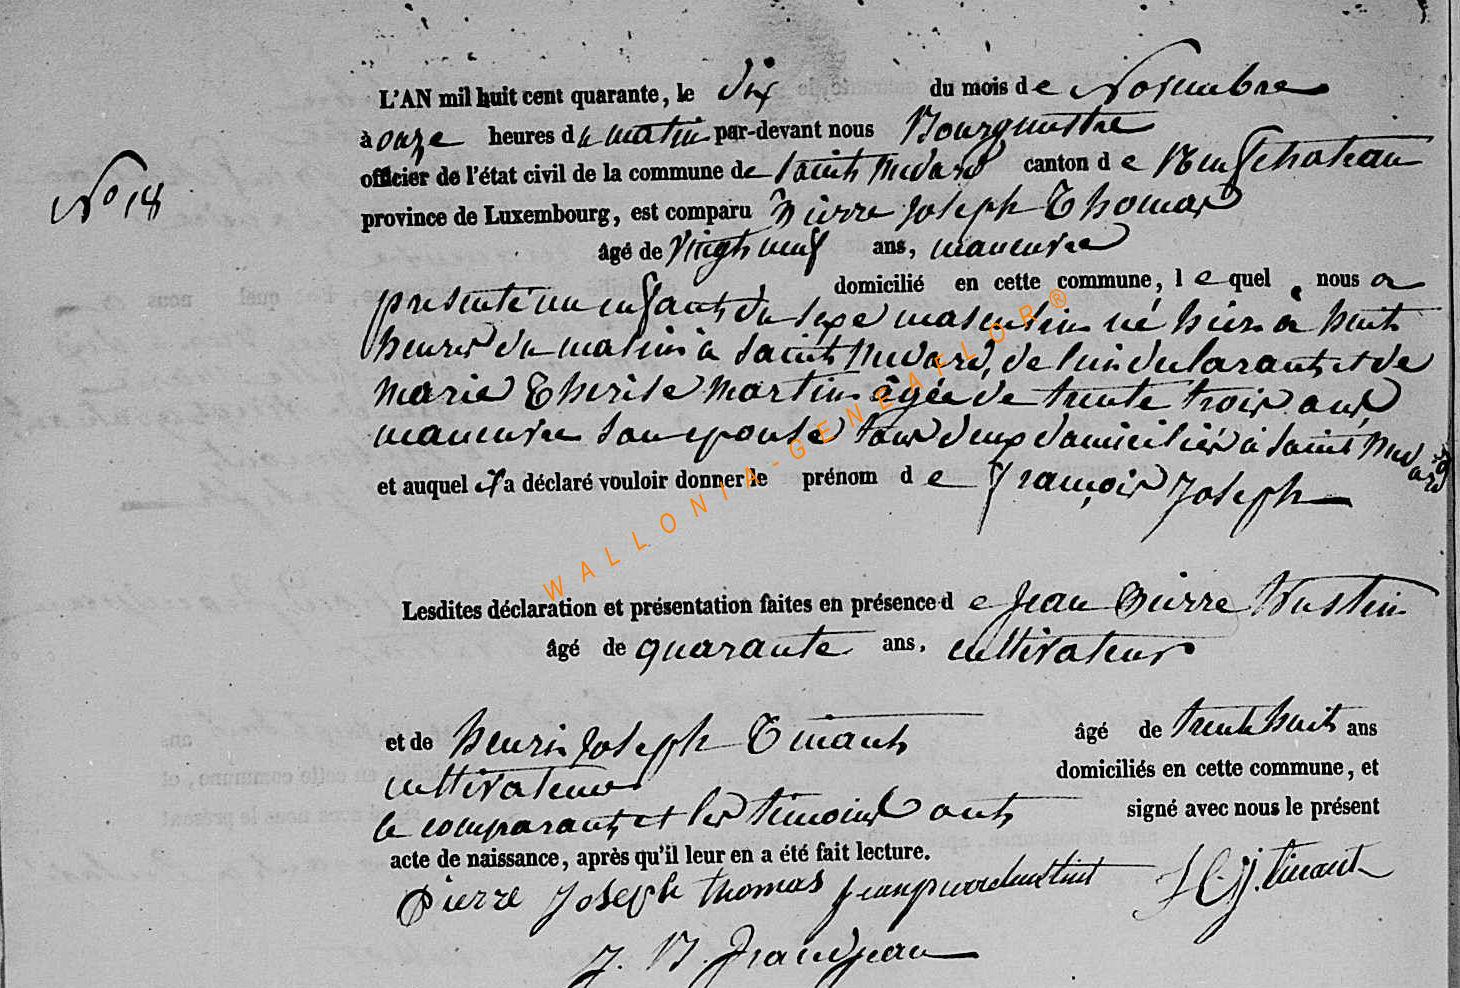 L'AN mil huit cent quarante, le dix du mois de Novembre
à onze heures du matin par-devant nous Bourgmestre
officier de l'état civil de la commune de Saint Médard canton de Neufchateau
No 18
province de Luxembourg, est comparu Pierre Joseph Thomas
âgé de vingt neuf ans, maneuvre
domicilié en cette commune, lequel nous a
présenté un enfant du sexe masculin né hier a huit
heures du matin a Saint Médard, de lui déclarant et de
marie Thérèse Martin âgée de trente trois ans
maneuvre son epouse tous deux domiciliés à Saint Médard
et auquel il a déclaré vouloir donner le prénom de François Joseph
Lesdites déclaration et présentation faites en présence de Jean Pierre Hustin
âgé de quarante ans, cultivateur
et de henri Joseph Tinant âgé de trente huit ans
cultivateur domiciliés en cette commune, et
le comparant et les témoins ont signé avec nous le présent
acte de naissance, après qu'il leur en a été fait lecture.
Pierre Joseph Thomas jean pierre hustint H. J. tinant
J. B. Grandjean
WALLONIA-GENEAFLOR®